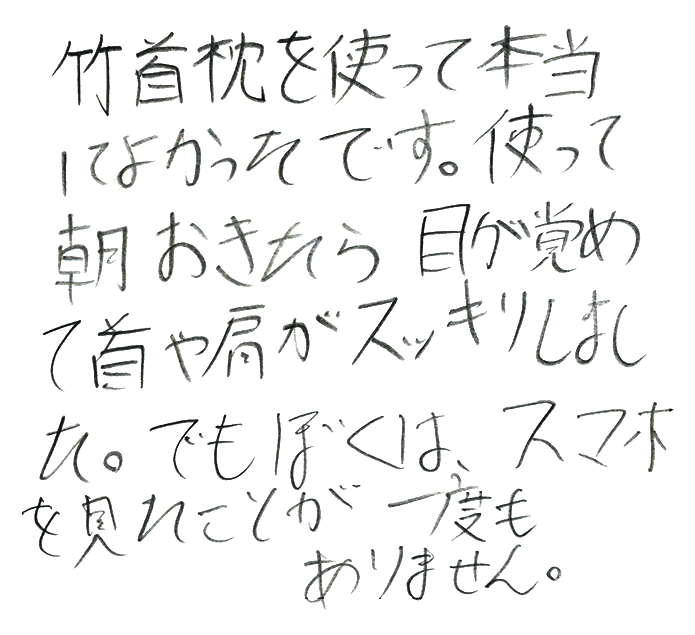 竹首枕を使って本当
によかったです。使って
朝おきたら目が覚め
て首や肩がスッキリしまし
た。でもぼくは、スマホ
を見たことが一度も
ありません。